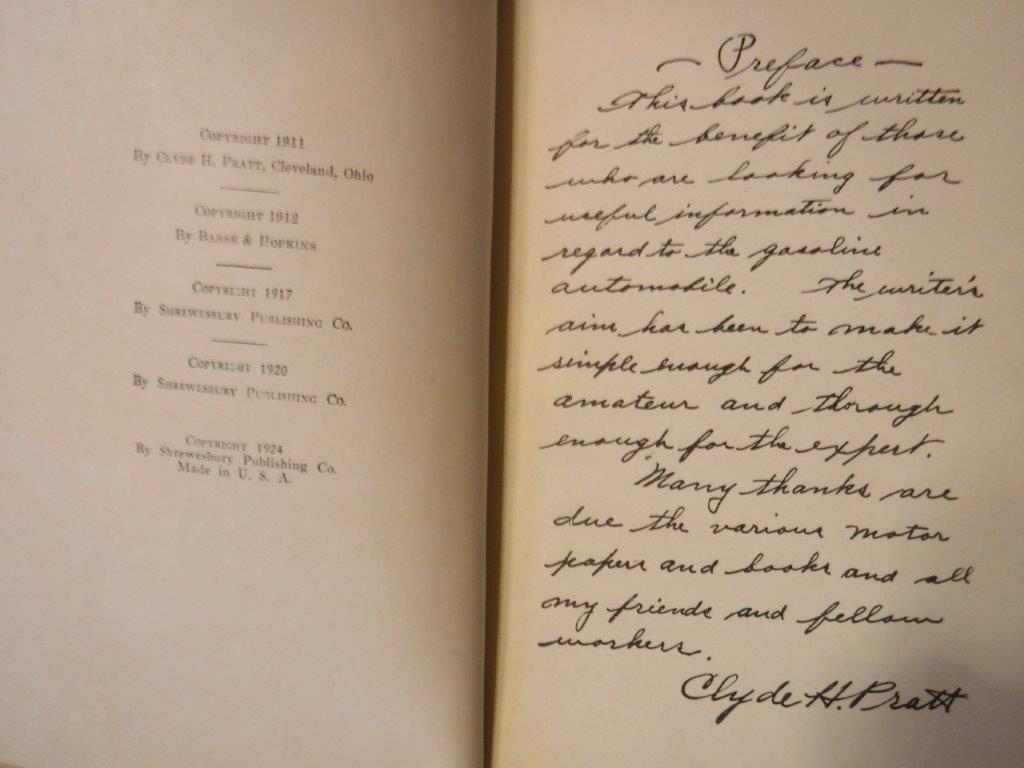 Copyright 1911
By Clyde H. Pratt, Cleveland, Ohio
Copyright 1912
By Barse & Hopkins
Copyright 1917
By Shrewesbury Publishing Co.
Copyright 1920
By Shrewesbury Publishing Co.
Copyright 1924
By Shrewesbury Publishing Co.
Made in U. S. A.
— Preface —
This book is written
for the benefit of those
who are looking for
useful information in
regard to the gasoline
automobile. The writer's
aim has been to make it
simple enough for the
amateur and thorough
enough for the expert.
Many thanks are
due the various motor
papers and books and all
my friends and fellow
workers.
Clyde H. Pratt